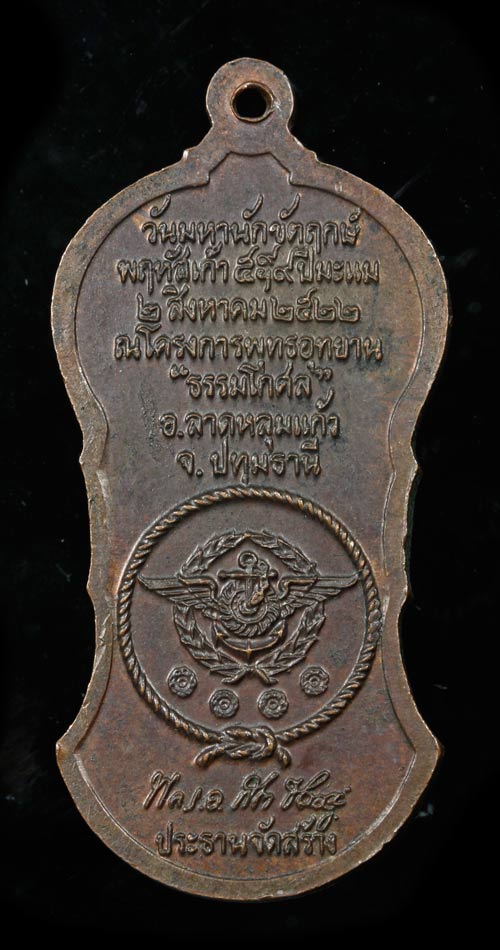 วันมหานักขัตฤกษ์
พฤหัสเก้า ๕๕๙ ปีมะแม
๒ สิงหาคม ๒๕๒๒
ณ โครงการพุทธอุทยาน
“ธรรมโกศล”
อ.ลาดหลุมแก้ว
จ. ปทุมธานี
พล.อ.
ประธานจัดสร้าง